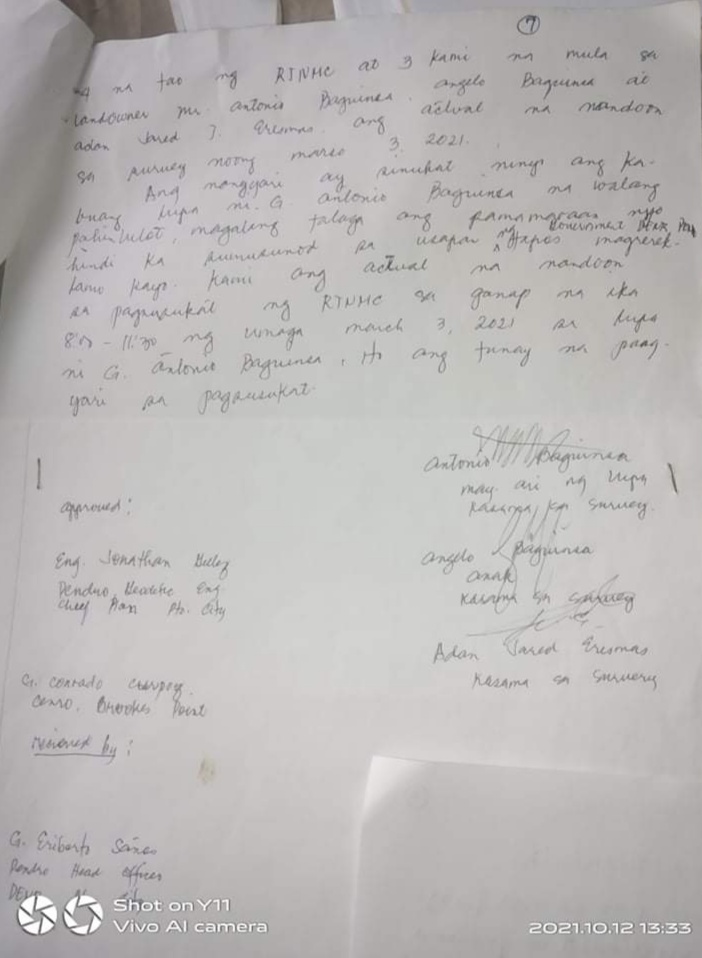 7
4 na tao ng RTNMC at 3 kami na mula sa
Landowner Mr. Antonio Baguinsa. angelo Baguinsa at
adan Jared J. Eresmas. ang actual na nandoon
sa survey noong marso 3, 2021.
Ang nangyari ay sinukat ninyo ang ka-
buang lupa ni G. antonio Baguinsa na walang
pahintulot, magaling talaga ang pamamaraan nyo
hindi ka sumusunod sa usapan ng Government
tapos magrerek-
lamo kayo. Kami ang actual na nandoon
sa pagsusukat ng RTNMC sa ganap na ika
8:00 - 11:30 ng umaga march 3, 2021 sa lupa
ni G. antonio Baguinsa, Ito ang tunay na pang-
yari sa pagsusukat.
antonio Baguinsa
may ari ng lupa
Kasama sa Survey.
approved:
angelo Baguinsa
anak
Kasama sa survey
Eng. Jonathan
Eng
City
Adan Jared Eresmas
Kasama sa survery
G. conrado
cenro. Brookes Point
recieved by:
G. Eriberto
Head
Shot on Y11
Vivo AI camera
2021.10.12 13:33